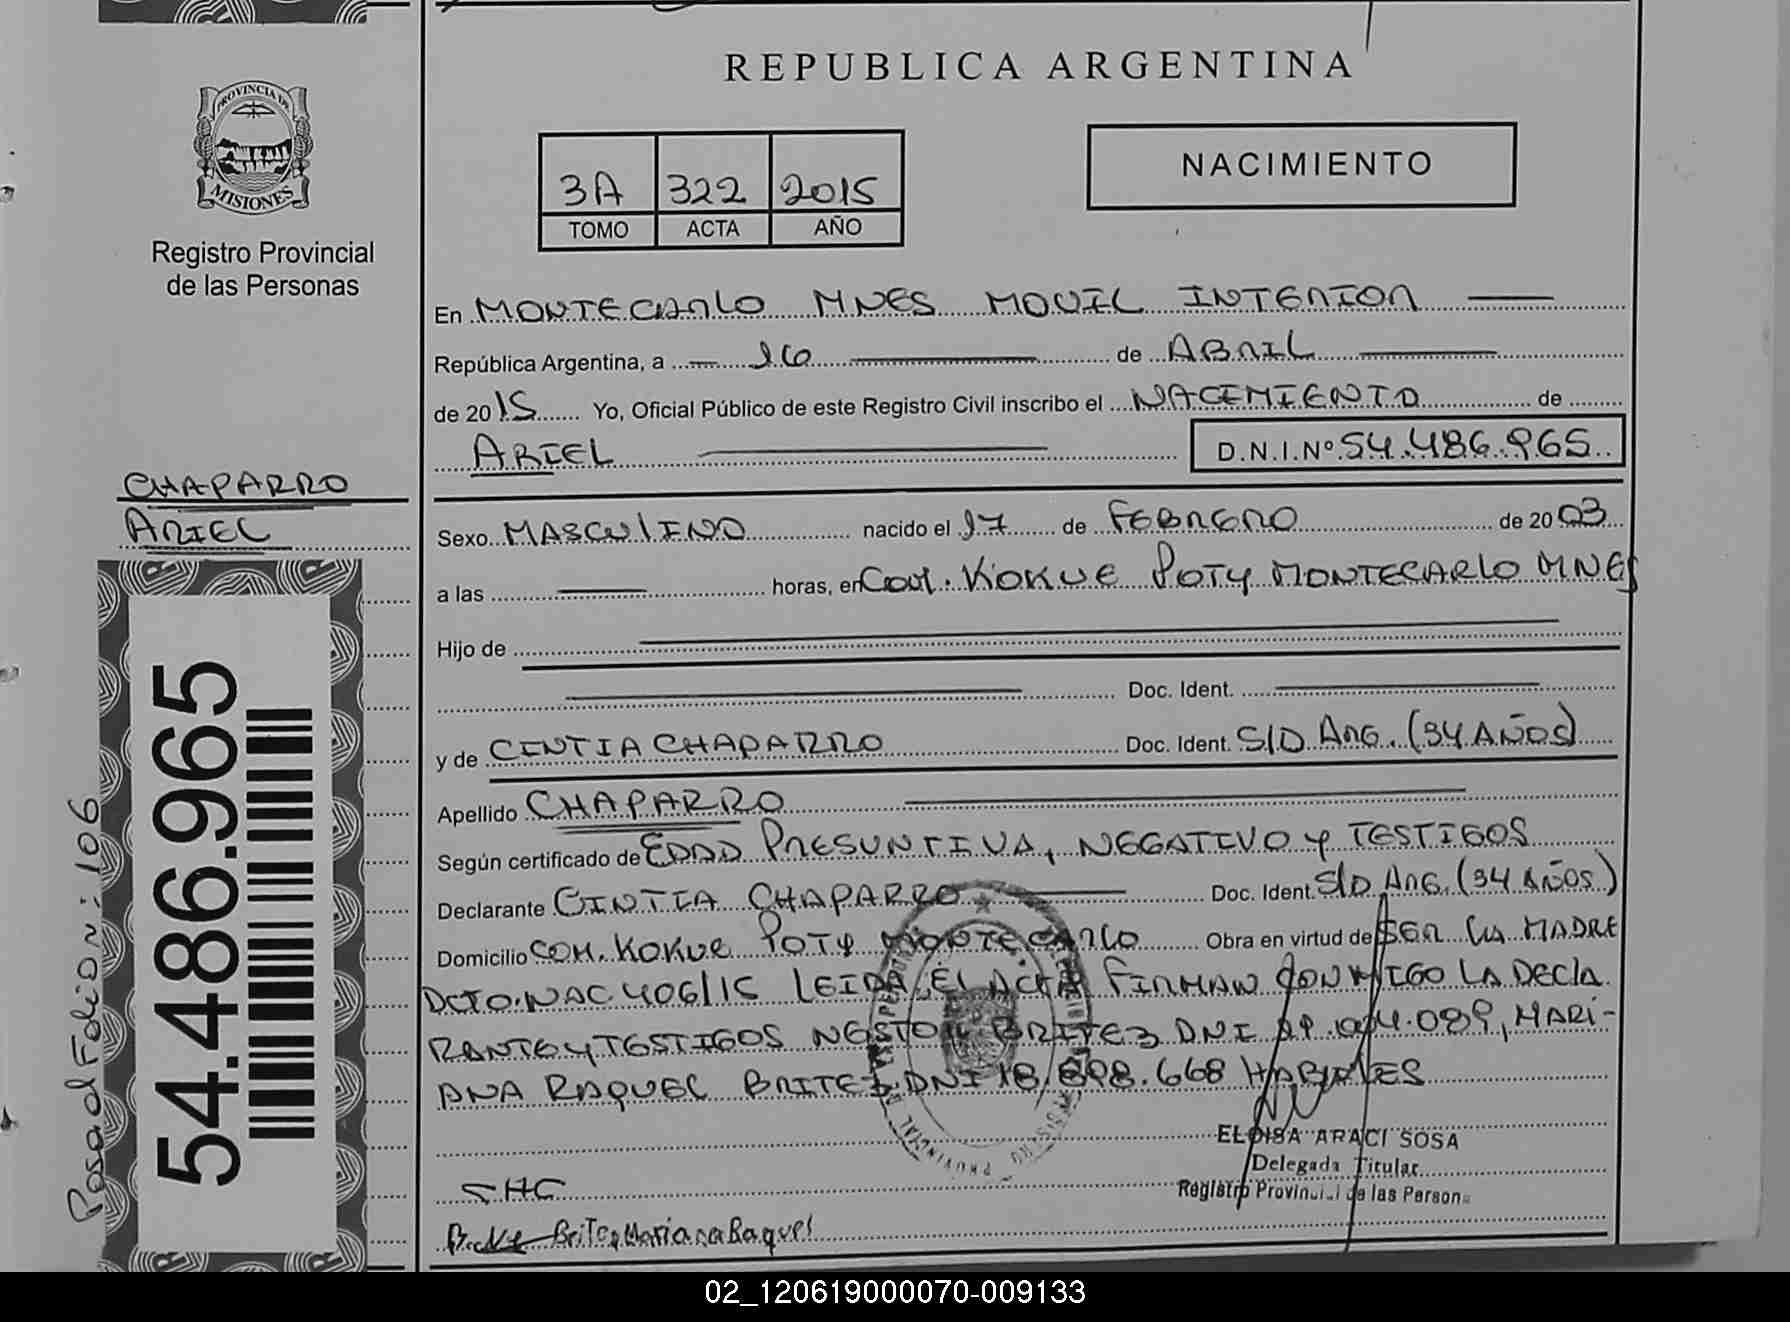 REPUBLICA ARGENTINA
PROVINCIA DE
MISIONES
Registro Provincial
de las Personas
3A 322 2015
TOMO ACTA AÑO
NACIMIENTO
En MONTECARLO MNES MOVIL INTERIOR
República Argentina, a 16 de ABRIL
de 2015 Yo, Oficial Público de este Registro Civil inscribo el NACIMIENTO de
ARIEL D.N.I.Nº 54.486.965
CHAPARRO
ARIEL
Sexo MASCULINO nacido el 17 de FEBRERO de 2003
a las horas, en Com. KOKUE POTY MONTECARLO MNES
Hijo de
Doc. Ident.
y de CINTIA CHAPARRO Doc. Ident. S/D ARG. (34 AÑOS)
Apellido CHAPARRO
Según certificado de EDAD PRESUNTIVA, NEGATIVO y TESTIGOS
Declarante CINTIA CHAPARRO Doc. Ident. S/D ARG. (34 AÑOS)
Domicilio COM. KOKUE POTY MONTECARLO Obra en virtud de SER LA MADRE
DCTO.NAC 406/15 LEIDA EL ACTA FIRMAN CONMIGO LA DECLA
RANTE y TESTIGOS NESTOR BRITEZ DNI, MARI-
ANA RAQUEL BRITEZ DNI 18. .668 HABILES
ELOISA ARACI SOSA
Delegada Titular
Registro Provincial de las Person
CHC
Britez Mariana Raquel
54.486.965
Pasa al Folio N: 106
02_120619000070-009133